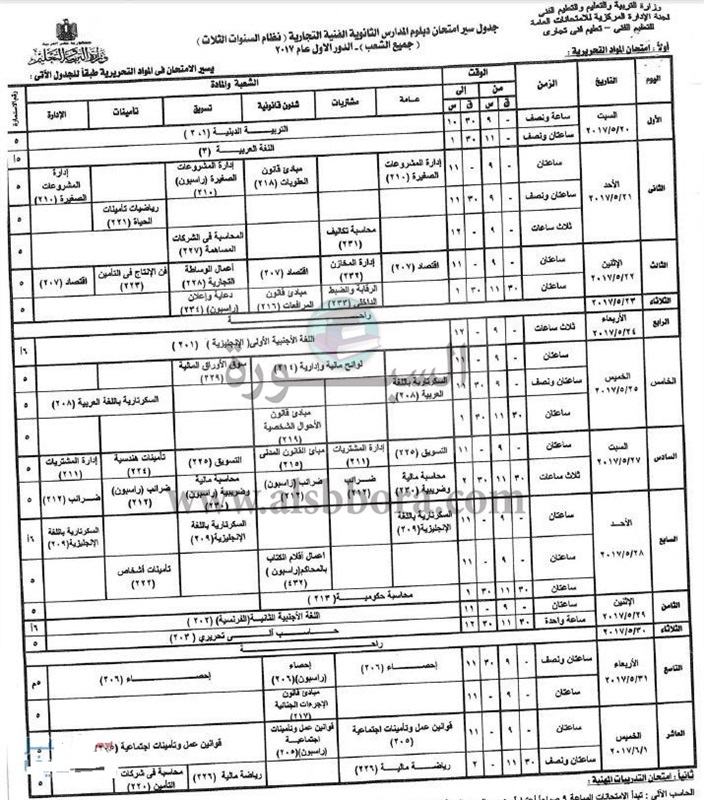 وزارة التربية والتعليم والتعليم الفنى
لجنة الإدارة المركزية للامتحانات العامة
للتعليم الفنى - تعليم فنى تجارى
جدول سير امتحان دبلوم المدارس الثانوية الفنية التجارية ( نظام السنوات الثلاث )
( جميع الشعب ) - الدور الأول عام ٢٠١٧
أولاً : امتحان المواد التحريرية :
يسير الامتحان فى المواد التحريرية طبقاً للجدول الآتى :
اليوم التاريخ الزمن الوقت الشعبة والمادة رقم الاستمارة
من إلى عامة مشتريات شئون قانونية تسويق تأمينات الإدارة
ق س ق س
الأول السبت ٢٠١٧/٥/٢٠ ساعة ونصف - ٩ ٣٠ ١٠ التربية الدينية (٢٠١) ٥
ساعتان ونصف - ١١ ٣٠ ١ اللغة العربية (٣) ٥أ
الثانى الأحد ٢٠١٧/٥/٢١ ساعتان - ٩ - ١١ إدارة المشروعات الصغيرة (٢١٠) مبادئ قانون العقوبات (٢١٨) إدارة المشروعات الصغيرة (راسبون) (٢١٠) إدارة المشروعات الصغيرة (٢١٠) ٥
ساعتان ونصف - ٩ ٣٠ ١١ رياضيات تأمينات الحياة (٢٢١) ٥
ثلاث ساعات - ٩ - ١٢ محاسبة تكاليف (٢٣١) المحاسبة فى الشركات المساهمة (٢٢٧) ٥
الثالث الإثنين ٢٠١٧/٥/٢٢ ساعتان - ٩ - ١١ اقتصاد (٢٠٧) إدارة المخازن (٢٣٢) اقتصاد (٢٠٧) أعمال الوساطة التجارية (٢٢٨) فن الإنتاج فى التأمين (٢٢٣) اقتصاد (٢٠٧) ٥
ساعتان ٣٠ ١١ ٣٠ ١ الرقابة والضبط الداخلى (٢٣٣) مبادئ قانون المرافعات (٢١٦) دعاية وإعلان (راسبون) (٢٣٤) ٥
الثلاثاء ٢٠١٧/٥/٢٣ راحة
الرابع الأربعاء ٢٠١٧/٥/٢٤ ثلاث ساعات - ٩ - ١٢ اللغة الأجنبية الأولى (الإنجليزية) (٢٠١) ٦أ
الخامس الخميس ٢٠١٧/٥/٢٥ ساعتان - ٩ - ١١ لوائح مالية وإدارية (٢١٤) سوق الأوراق المالية (٢٢٩) ٥
ساعتان ونصف - ٩ ٣٠ ١١ السكرتارية باللغة العربية (٢٠٨) السكرتارية باللغة العربية (٢٠٨) ٥
ساعتان ٣٠ ١١ ٣٠ ١ مبادئ قانون الأحوال الشخصية (٢١٩) ٥
السادس السبت ٢٠١٧/٥/٢٧ ساعتان - ٩ - ١١ التسويق (٢٢٥) إدارة المشتريات (٢١١) مبادئ القانون المدنى (٢١٥) التسويق (٢٢٥) تأمينات هندسية (٢٢٤) إدارة المشتريات (٢١١) ٥
ثلاث ساعات ٣٠ ١١ ٣٠ ٢ محاسبة مالية وضريبية (٢٣٠) ضرائب (٢١٢) ضرائب (راسبون) (٢١٢) محاسبة مالية وضريبية (راسبون) (٢٣٠) ضرائب (راسبون) (٢١٢) ضرائب (٢١٢) ٥
السابع الأحد ٢٠١٧/٥/٢٨ ساعتان - ٩ - ١١ السكرتارية باللغة الإنجليزية (٢٠٩) السكرتارية باللغة الإنجليزية (٢٠٩) السكرتارية باللغة الإنجليزية (٢٠٩) ٦أ
ساعتان - ٩ - ١١ أعمال أقلام الكتاب بالمحاكم (راسبون) (٤٣٢) تأمينات أشخاص (٢٢٢) ٥
ساعتان ٣٠ ١١ ٣٠ ١ محاسبة حكومية (٢١٣) ٥
الثامن الإثنين ٢٠١٧/٥/٢٩ ساعتان - ٩ - ١١ اللغة الأجنبية الثانية (الفرنسية) (٢٠٢) ٦أ
ساعة واحدة ٣٠ ١١ ٣٠ ١٢ حاسب آلى تحريري (٢٠٣) ٥
الثلاثاء ٢٠١٧/٥/٣٠ راحة
التاسع الأربعاء ٢٠١٧/٥/٣١ ساعتان ونصف - ٩ ٣٠ ١١ إحصاء (٢٠٦) إحصاء (راسبون) (٢٠٦) إحصاء (٢٠٦) ٥م
ساعتان - ٩ - ١١ مبادئ قانون الإجراءات الجنائية (٢١٧) ٥
العاشر الخميس ٢٠١٧/٦/١ ساعتان - ٩ - ١١ قوانين عمل وتأمينات اجتماعية (٢٠٥) قوانين عمل وتأمينات اجتماعية (راسبون) (٢٠٥) قوانين عمل وتأمينات اجتماعية
ساعتان ونصف ٣٠ ١١ - ٢ رياضة مالية (٢٢٦) رياضة مالية (٢٢٦) محاسبة فى شركات التأمين (٢٢٠) ٥
ثانياً : امتحان التدريبات المهنية :
السبورة
www.alsbbora.com